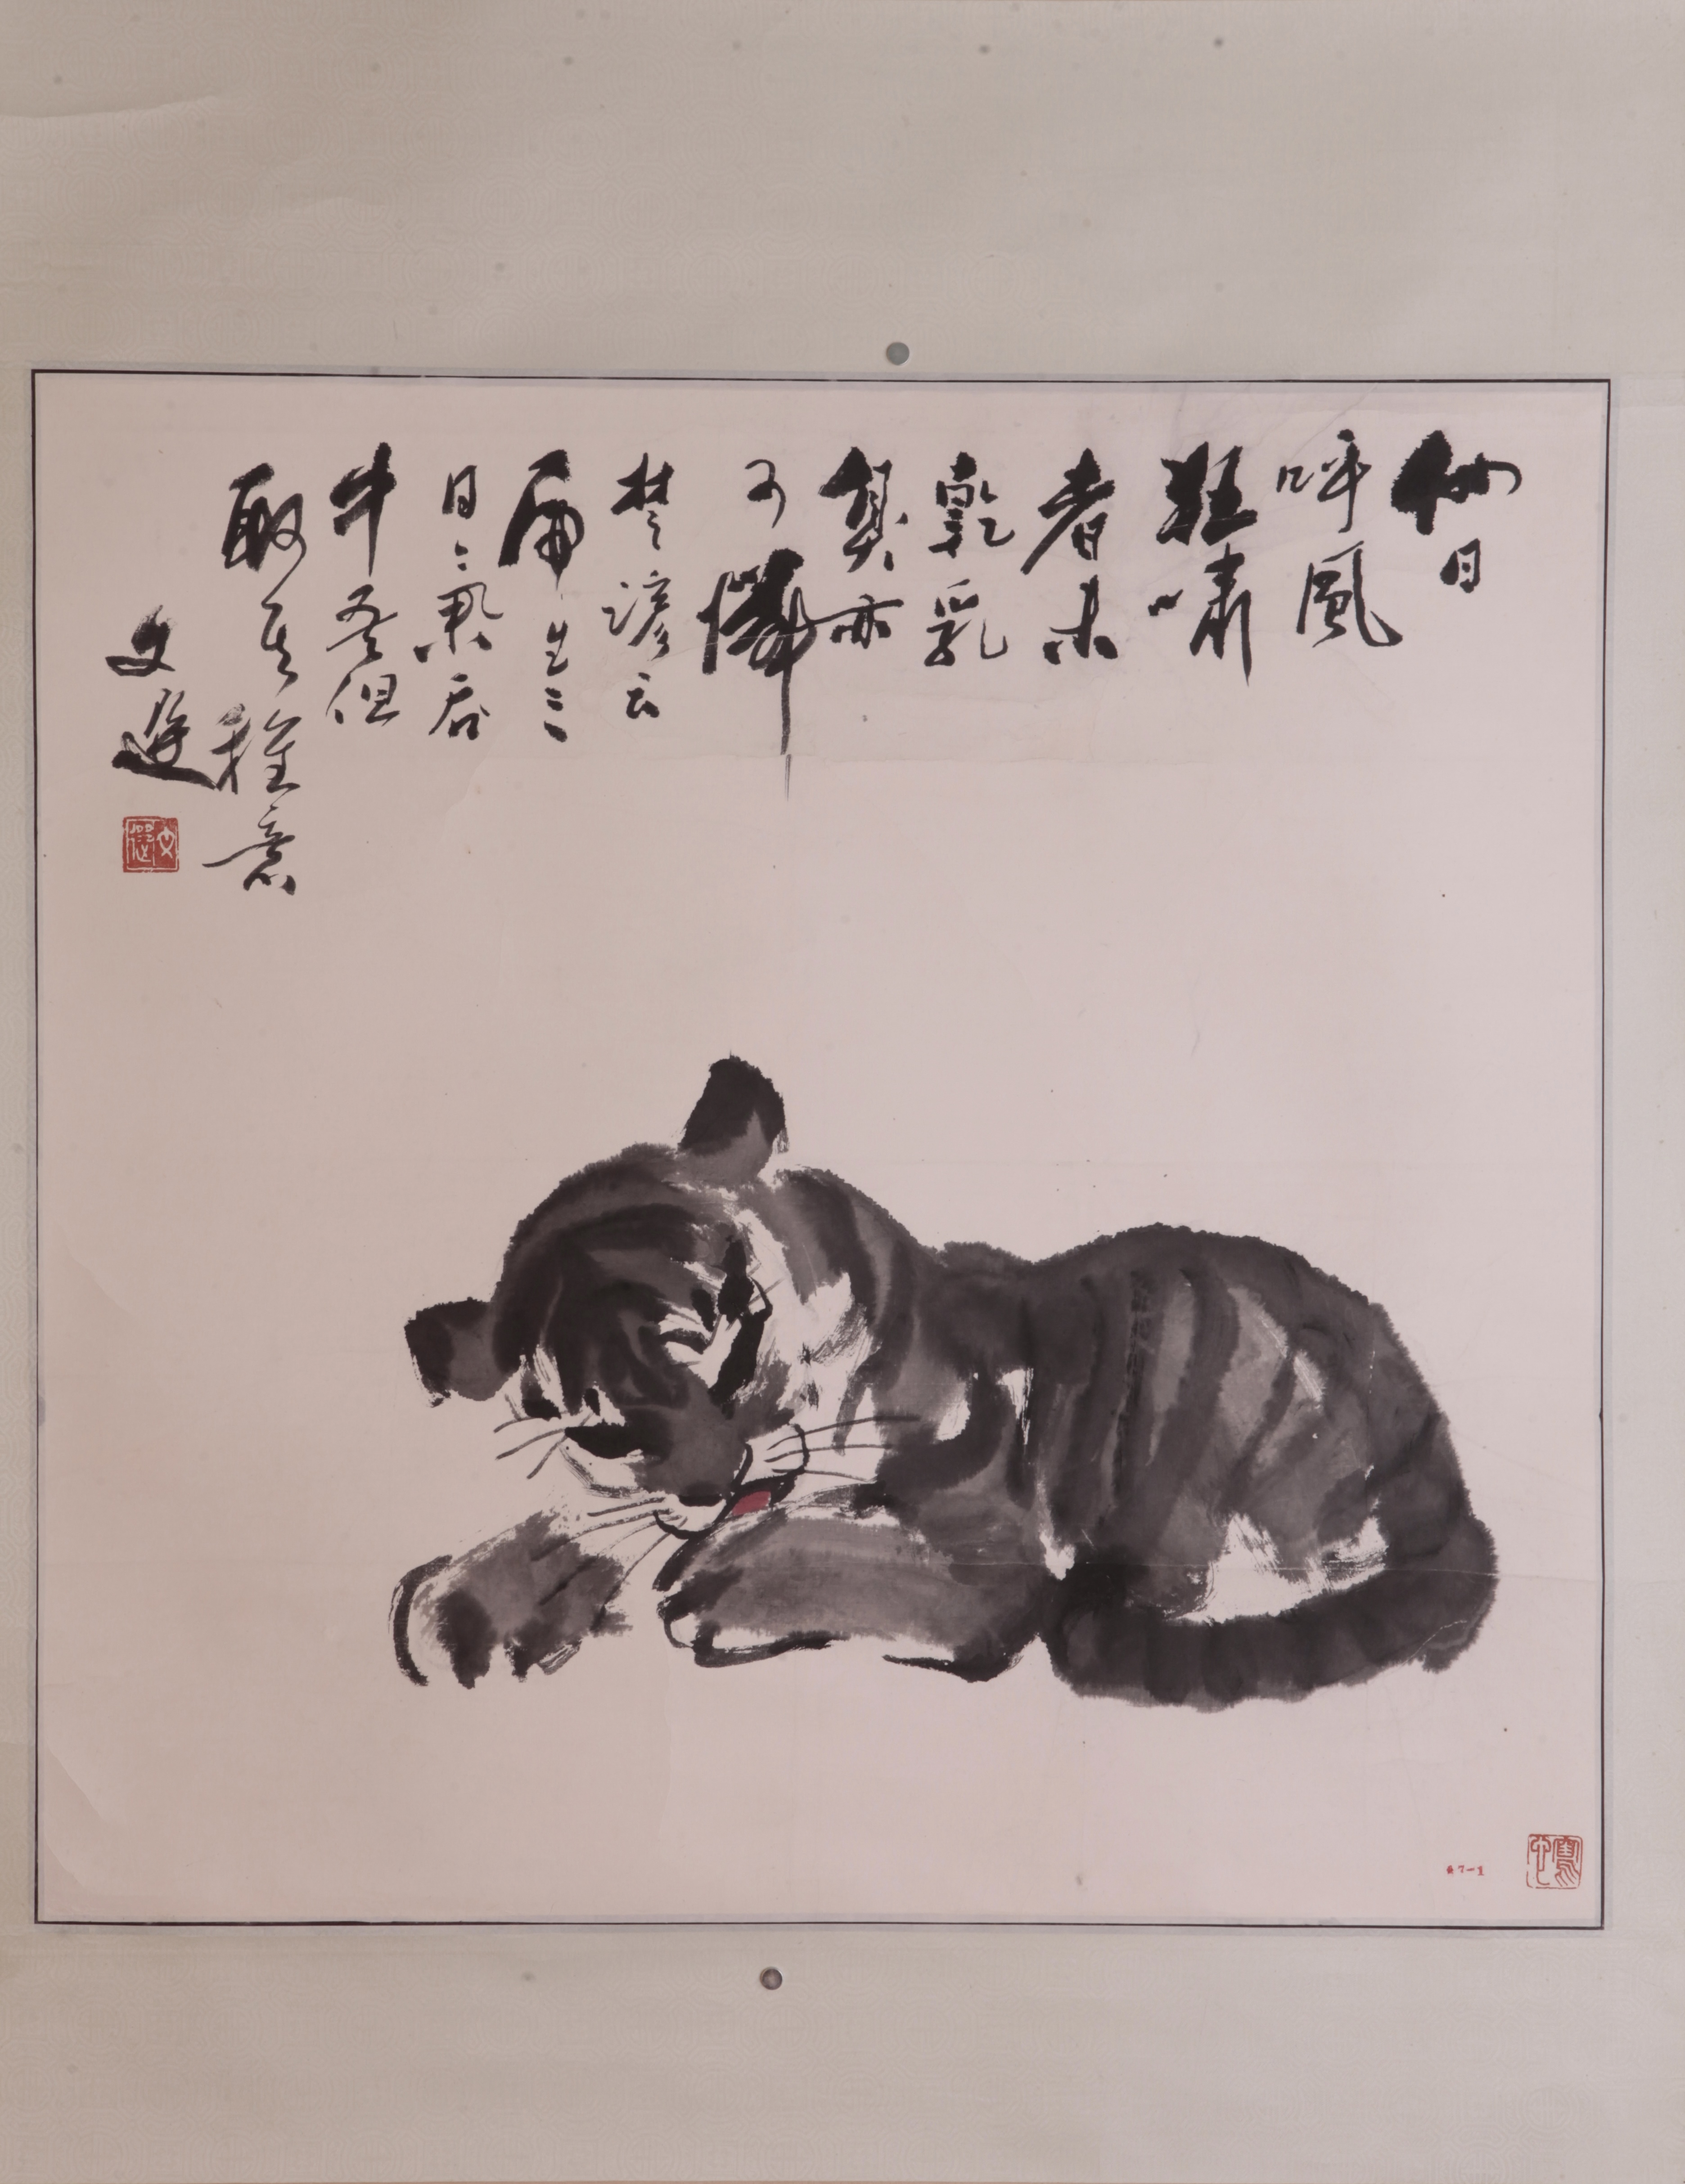 他日
呼風
狂嘯
者未
乾乳
臭亦
可憐
楚諺云
虎生三
日氣吞
牛吾但
取其稚意
文選
文選
寫心